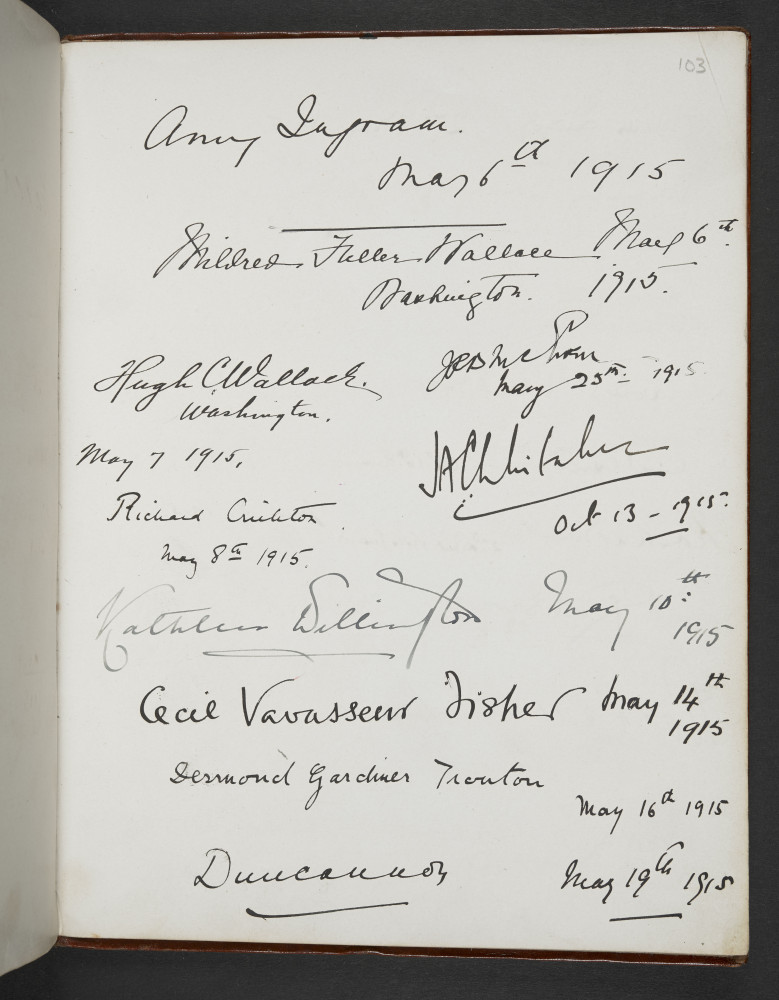 103
Amy Ingram.
May 6th 1915
Mildred Fuller Wallace May 6th.
Washington. 1915.
Hugh C Wallace.
Washington.
May 7 1915.
May 25th 1915
Richard Crichton.
May 8th 1915.
JA Whitaker
Oct 13 - 1915.
Kathleen Wellington May 10th
1915
Cecil Vavasseur Fisher May 14th
1915
Desmond Gardiner Trouton
May 16th 1915
Duncannon May 19th 1915